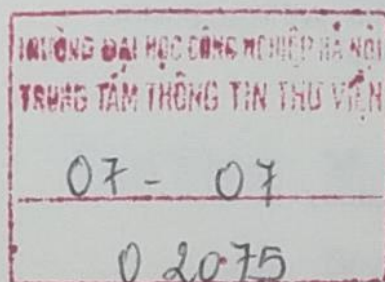 TRƯỜNG ĐẠI HỌC CÔNG NGHIỆP HÀ NỘI
TRUNG TÂM THÔNG TIN THƯ VIỆN
07 - 07
02075